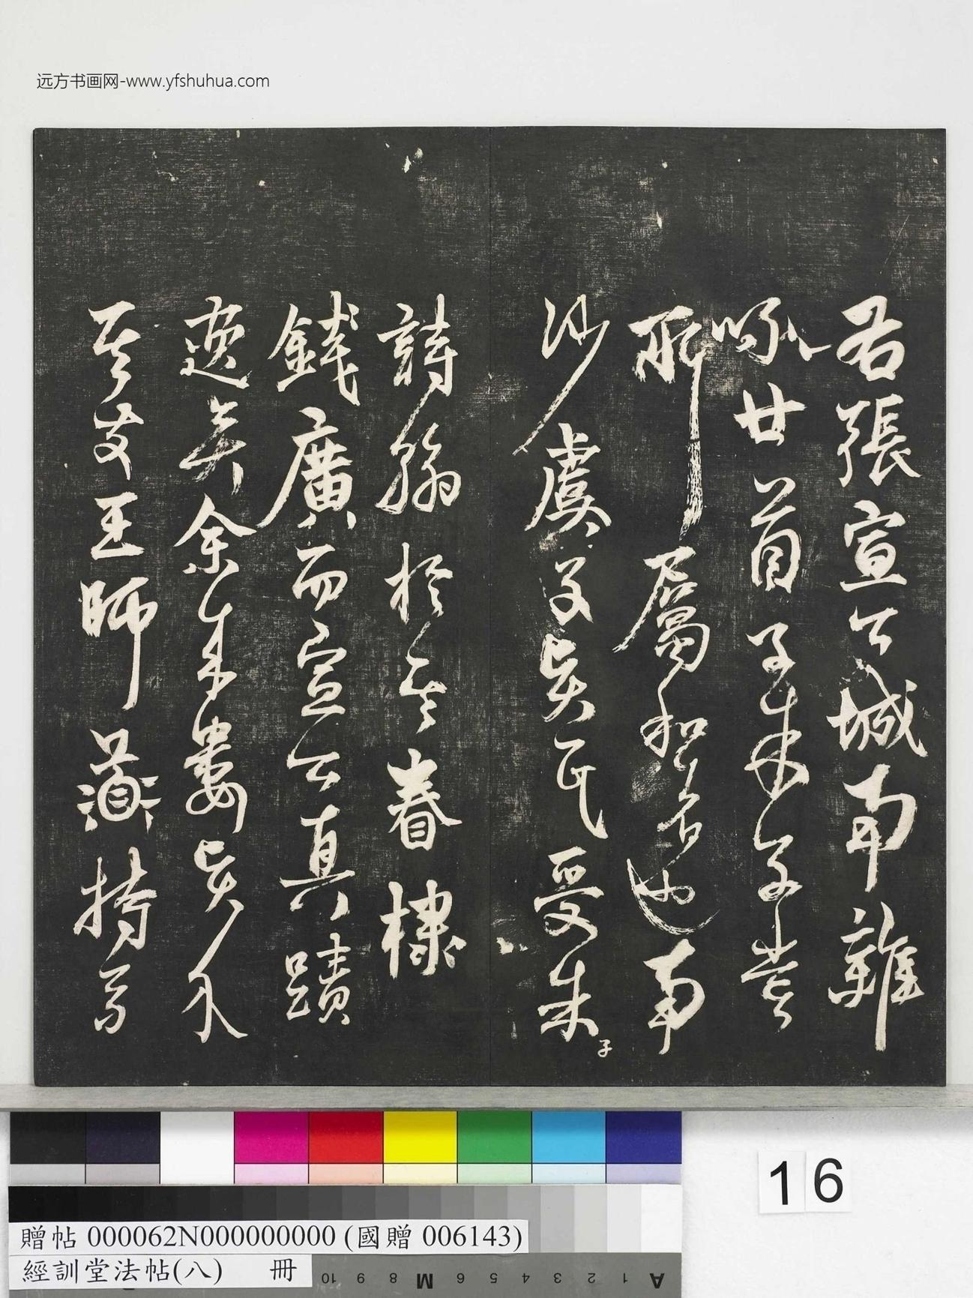 远方书画网-www.yfshuhua.com
右張宣公城南雜
咏廿首子朱子
所屬和者也南
沙虞子賢氏受朱子
詩翰於其春棣
錢廣而宣公真蹟
逸矣余來婁賢介
其友王師持
16
贈帖 000062N000000000 (國贈 006143)
經訓堂法帖(八) 冊
10 9 8 M 6 5 4 3 2 1 A